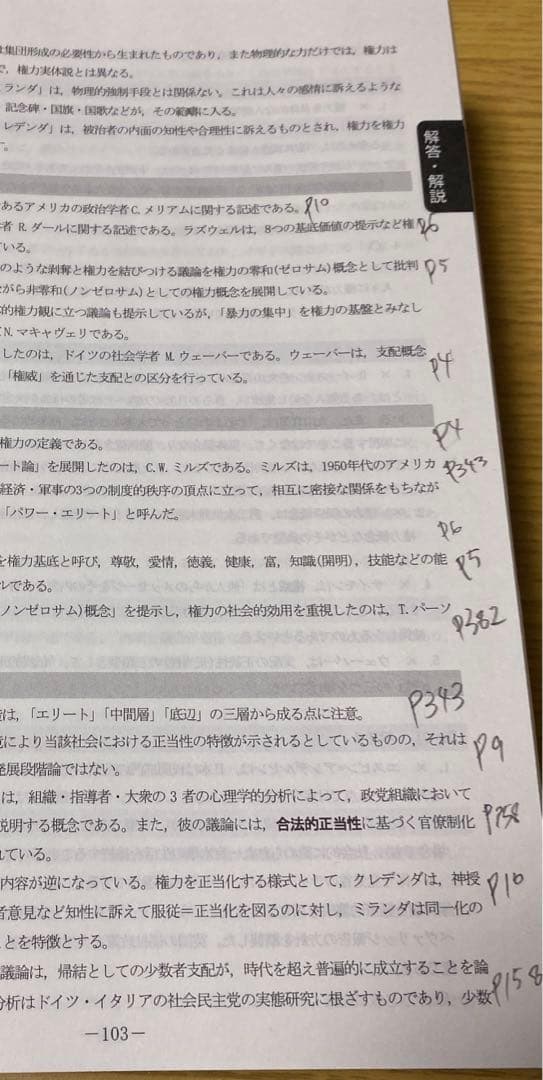 は集団形成の必要性から生まれたものであり，また物理的な力だけでは，権力は
で，権力実体説とは異なる。
ミランダ」は，物理的強制手段とは関係ない。これは人々の感情に訴えるような
記念碑・国旗・国歌などが，その範疇に入る。
レデンダ」は，被治者の内面の知性や合理性に訴えるものとされ，権力を権力
す。
解答・解説
あるアメリカの政治学者C.メリアムに関する記述である。 P10
者 R. ダールに関する記述である。ラズウェルは，8つの基底価値の提示など権 P6
ている。
のような剥奪と権力を結びつける議論を権力の零和(ゼロサム)概念として批判 P5
ながら非零和(ノンゼロサム)としての権力概念を展開している。
体的権力観に立つ議論も提示しているが，「暴力の集中」を権力の基盤とみなし
N. マキャヴェリである。
したのは，ドイツの社会学者 M. ウェーバーである。ウェーバーは，支配概念
「権威」を通じた支配との区分を行っている。 P4
権力の定義である。 P4
ート論」を展開したのは，C.W. ミルズである。ミルズは，1950年代のアメリカ P343
経済・軍事の3つの制度的秩序の頂点に立って，相互に密接な関係をもちなが
「パワー・エリート」と呼んだ。
P6
を権力基底と呼び，尊敬，愛情，徳義，健康，富，知識(開明)，技能などの能 P5
ルである。
ノンゼロサム)概念」を提示し，権力の社会的効用を重視したのは，T. パーソ P382
造は，「エリート」「中間層」「底辺」の三層から成る点に注意。 P343
境により当該社会における正当性の特徴が示されるとしているものの，それは P9
発展段階論ではない。
は，組織・指導者・大衆の 3 者の心理学的分析によって，政党組織において
説明する概念である。また，彼の議論には，合法的正当性に基づく官僚制化 P258
れている。
内容が逆になっている。権力を正当化する様式として，クレデンダは，神授 P10
者意見など知性に訴えて服従＝正当化を図るのに対し，ミランダは同一化の
ことを特徴とする。
議論は，帰結としての少数者支配が，時代を超え普遍的に成立することを論
分析はドイツ・イタリアの社会民主党の実態研究に根ざすものであり，少数 P158
－103－